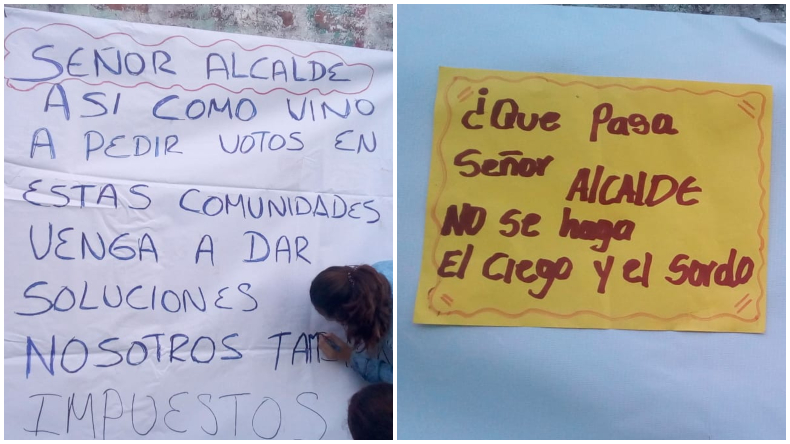 SEÑOR ALCALDE
ASI COMO VINO
A PEDIR VOTOS EN
ESTAS COMUNIDADES
VENGA A DAR
SOLUCIONES
NOSOTROS TAM
IMPUESTOS
¿Que pasa
Señor AlCAlDE
NO se haga
El Ciego y el Sordo